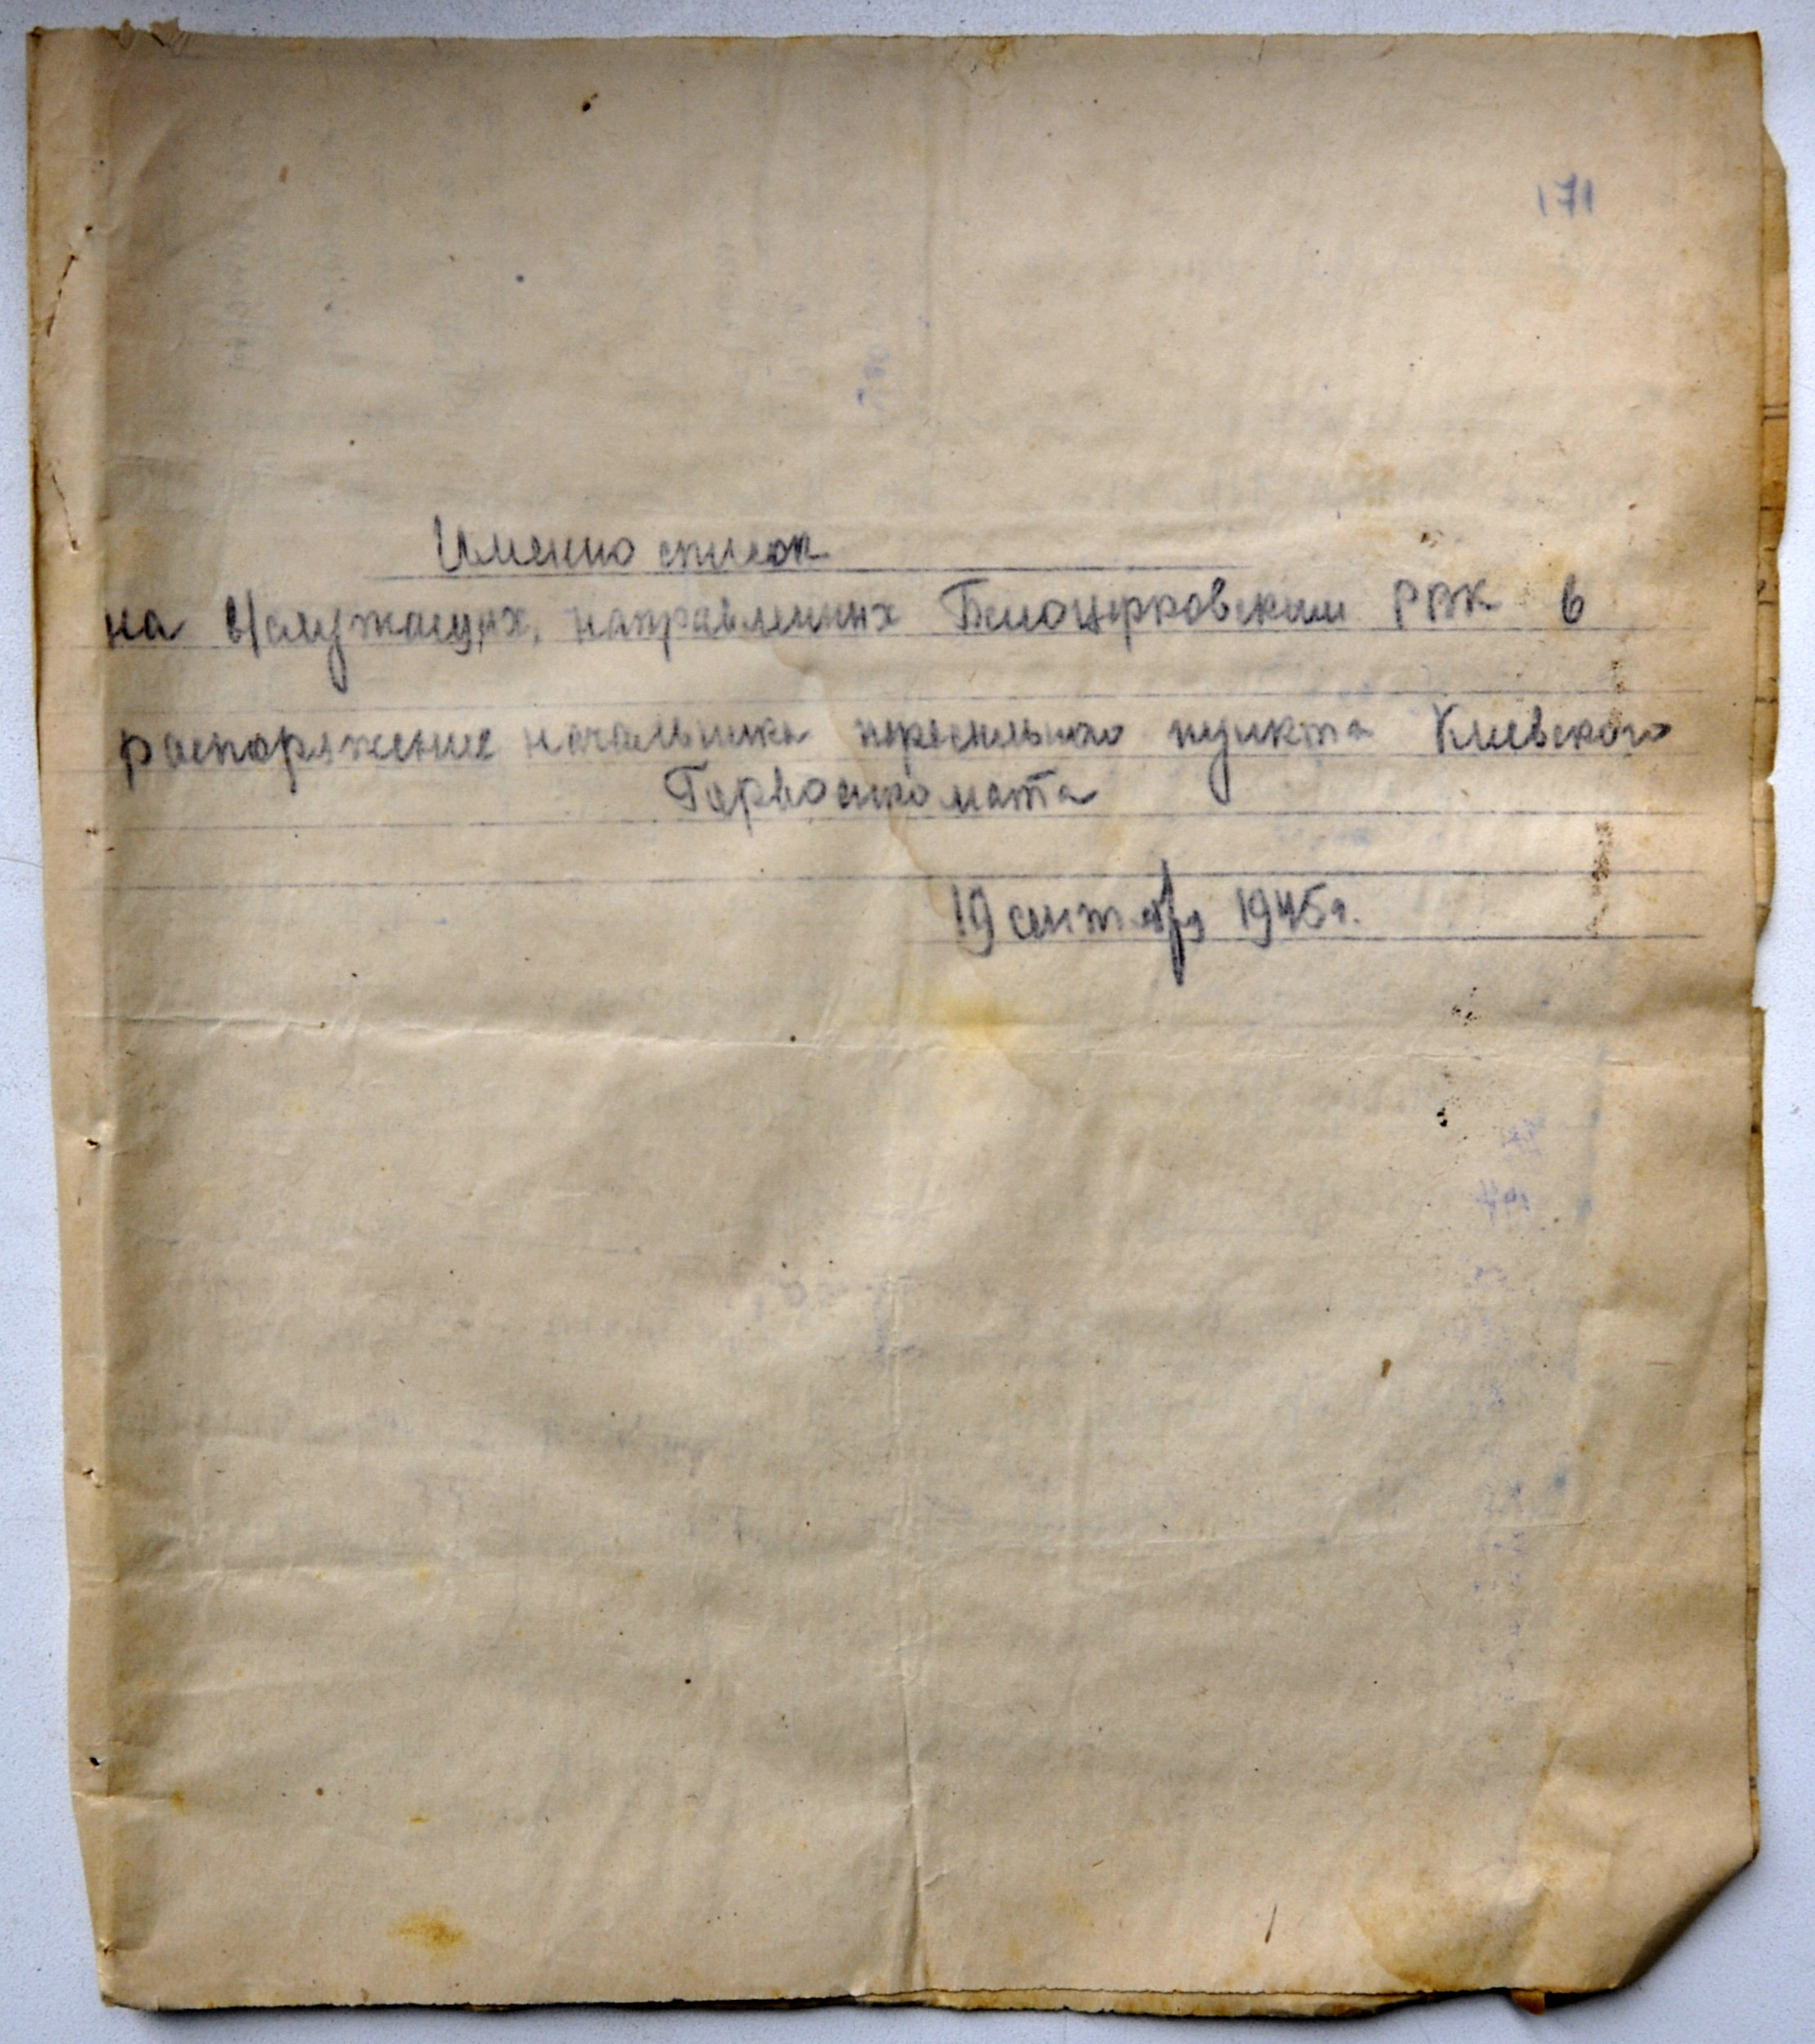 171
Именно список
на в/служащих, направленных Белоцерковским РВК в
распоряжение начальника пересыльного пункта Киевского
Горвоенкомата
19 сентября 1945г.